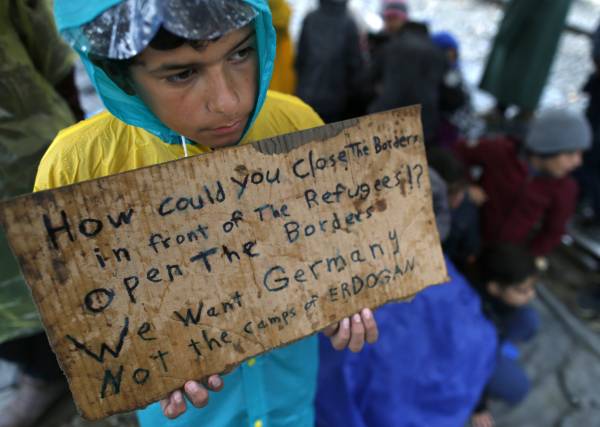 How could you Close The Borders
in front of The Refugees!?
Open The Borders
We Want Germany
Not the camps of ERDOGAN